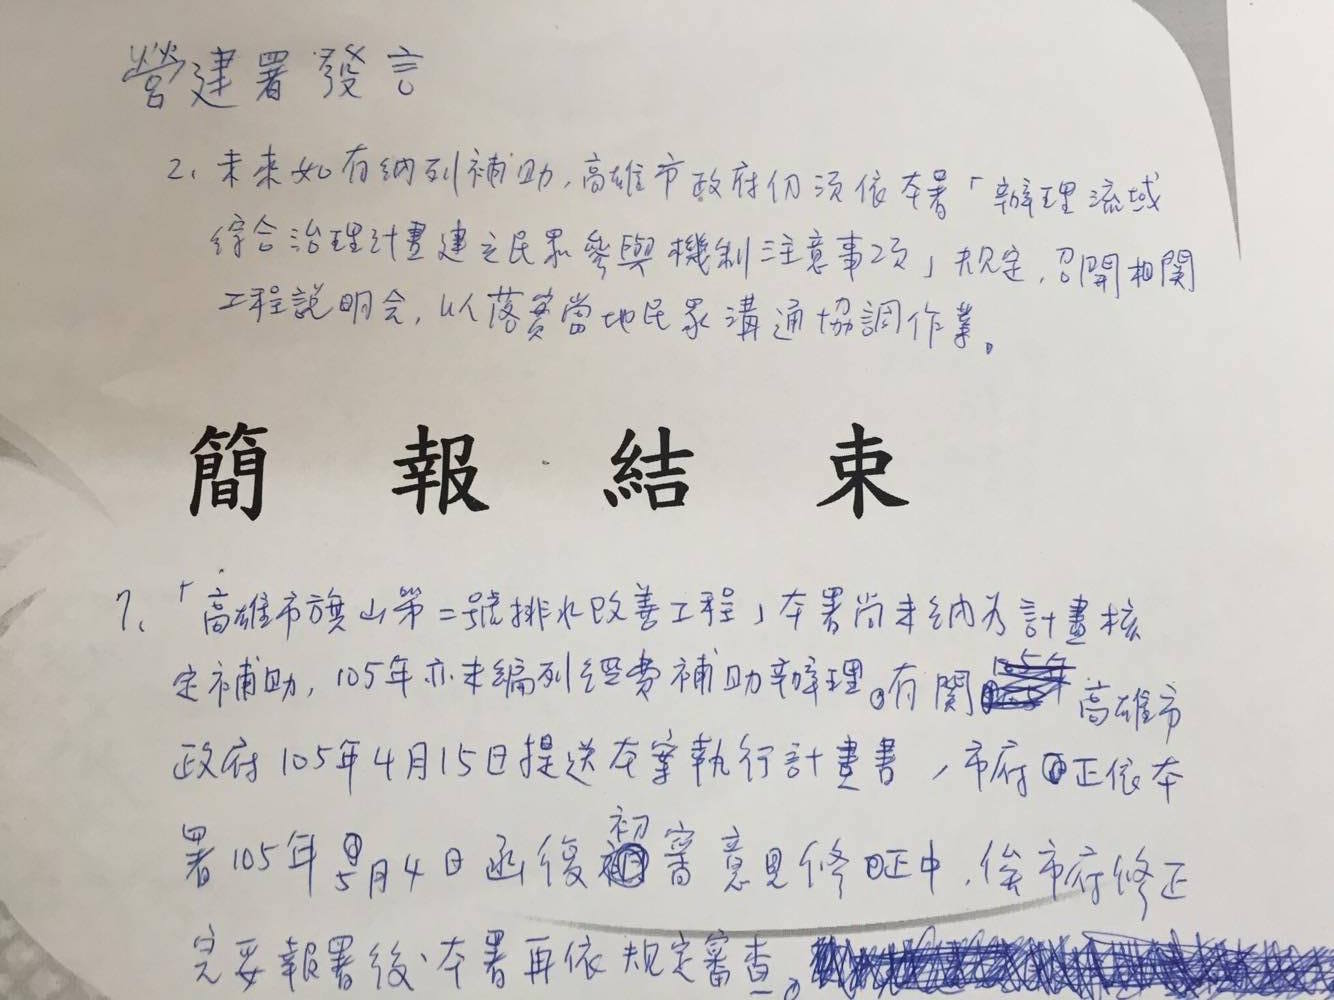 營建署發言
2、未來如有納列補助,高雄市政府仍須依本署「辦理流域
綜合治理計畫建立民眾參與機制注意事項」規定,召開相關
工程說明会,以落實當地民眾溝通協調作業。
簡報結束
7、「高雄市旗山第二號排水改善工程」本署尚未納為計畫核
定補助,105年亦未編列經費補助辦理。有關 高雄市
政府105年4月15日提送本案執行計畫書,市府正依本
署105年5月4日函復初審意見修正中,俟市府修正
完妥報署後、本署再依規定審查。